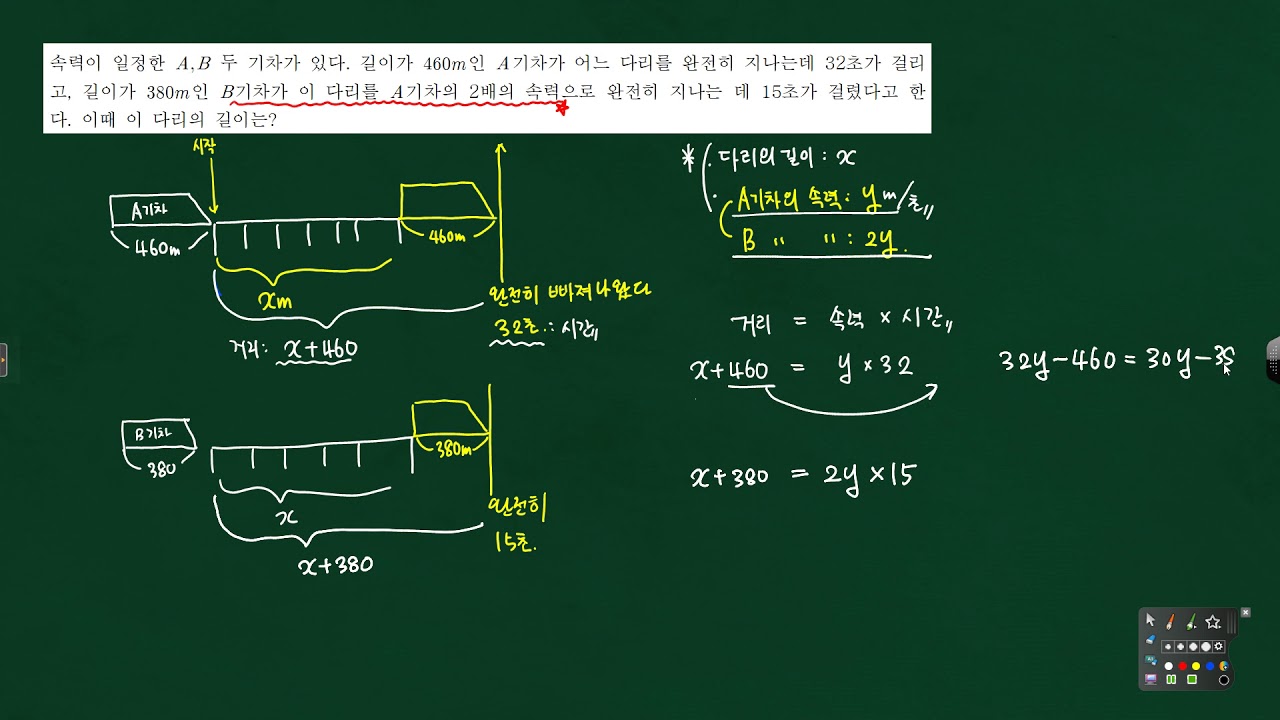 속력이 일정한 A, B 두 기차가 있다. 길이가 460m인 A기차가 어느 다리를 완전히 지나는데 32초가 걸리
고, 길이가 380m인 B기차가 이 다리를 A기차의 2배의 속력으로 완전히 지나는 데 15초가 걸렸다고 한
다. 이때 이 다리의 길이는?
시작
A기차
460m
460m
xm
완전히 빠져나왔다
32초 : 시간
거리: x+460
B기차
380
380m
x
완전히
15초.
x+380
* · 다리의 길이 : x
· A기차의 속력 : y m/초
B 〃 〃 : 2y.
거리 = 속력 × 시간
x+460 = y×32
x+380 = 2y×15
32y-460=30y-38